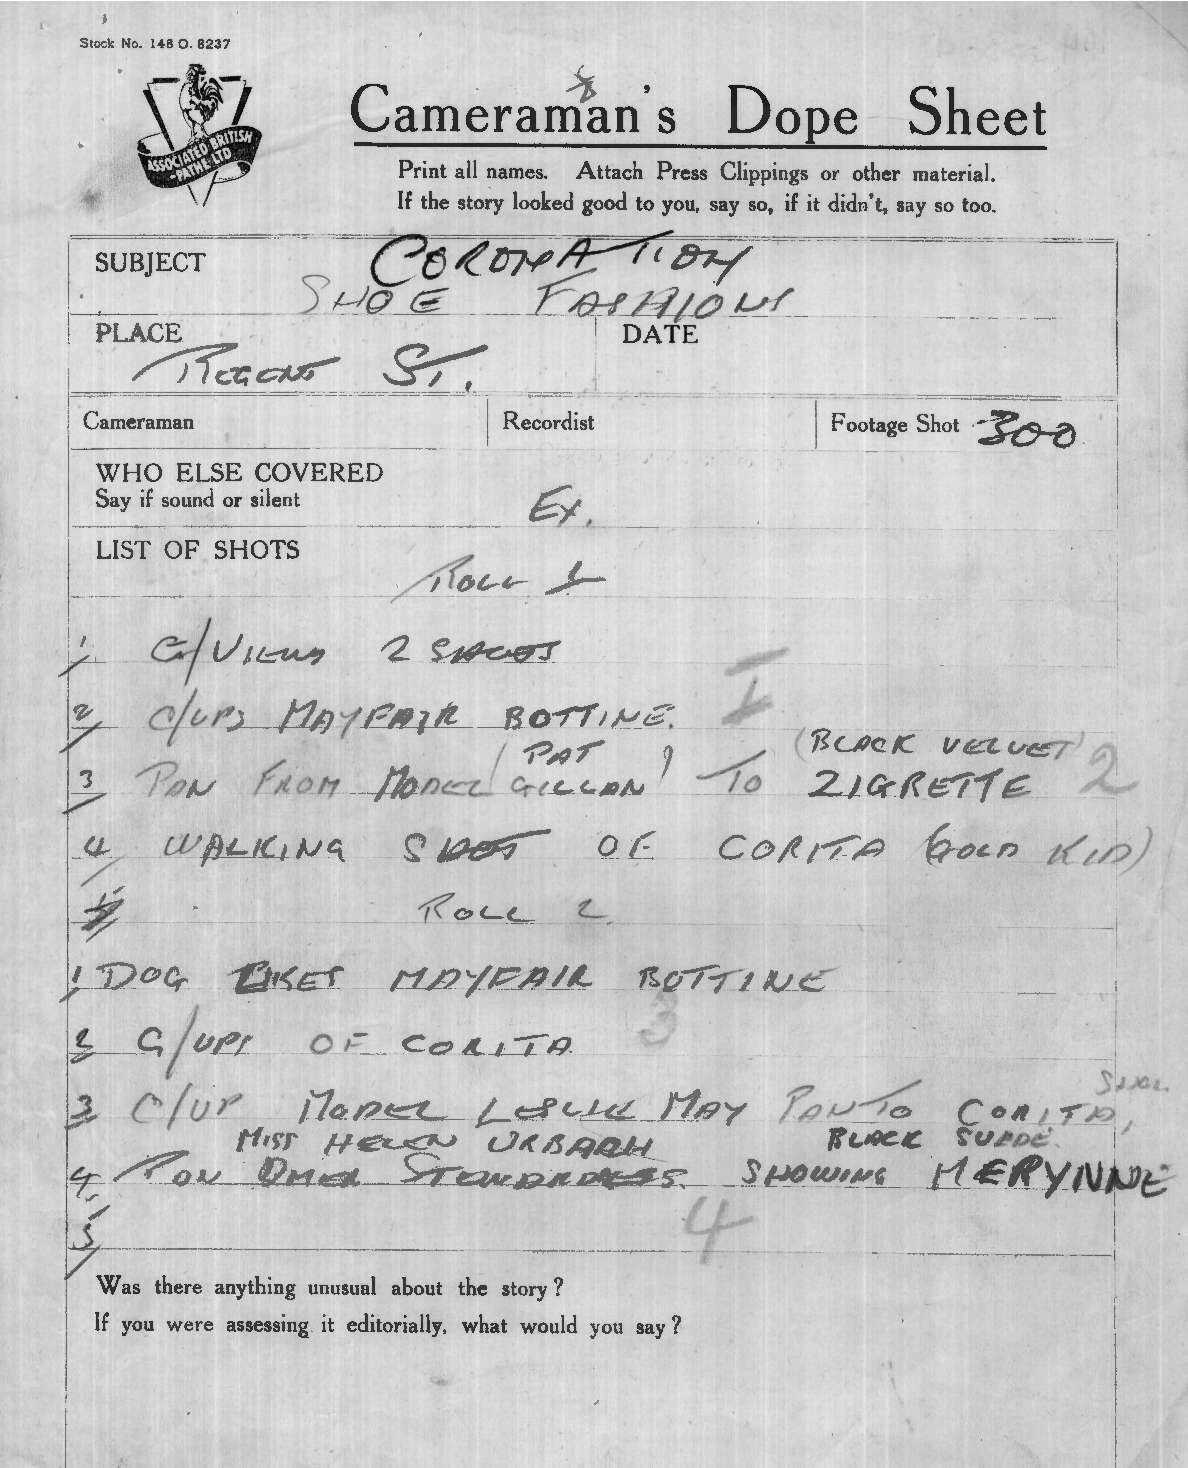 Stock No. 148 O. 8237
ASSOCIATED BRITISH
-PATHE LTD
Cameraman's Dope Sheet
Print all names. Attach Press Clippings or other material.
If the story looked good to you, say so, if it didn't, say so too.
SUBJECT CORONATION
SHOE FASHIONS
PLACE DATE
REGENT ST.
Cameraman Recordist Footage Shot 300
WHO ELSE COVERED
Say if sound or silent Ex.
LIST OF SHOTS
ROLL 1
1/ G/VIEWS 2 SHOTS
2/ C/UPS MAYFAIR BOTTINE. 1
3/ PAN FROM MODEL (PAT GILLAN) TO (BLACK VELVET) ZIGRETTE 2
4/ WALKING SHOT OF CORITA (GOLD KID)
ROLL 2
1/ DOG LIKES MAYFAIR BOTTINE
2 C/UPS OF CORITA 3
3 C/UP MODEL LESLIE MAY PAN TO CORITA,
MISS HELEN URBACH BLACK SUEDE.
4. PAN SHOWING MERYNNE
5/ 4
Was there anything unusual about the story?
If you were assessing it editorially, what would you say?